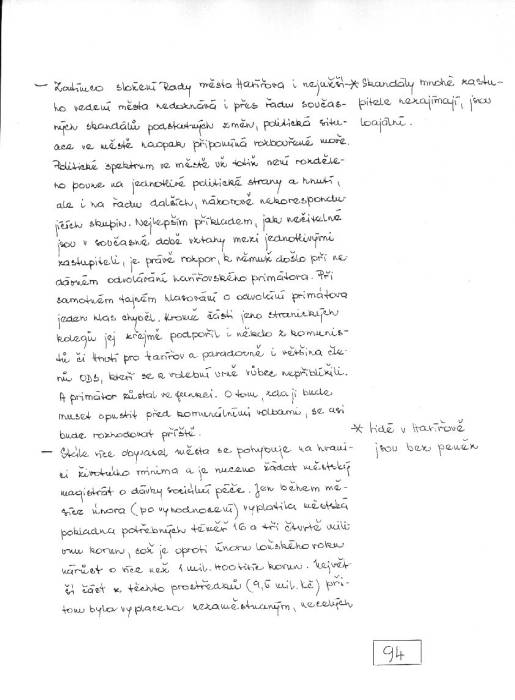 – Zatímco složení Rady města Havířova i nejužší-
ho vedení města nedoznává i přes řadu součas-
ných skandálů podstatných změn, politická situ-
ace ve městě naopak připomíná rozbouřené moře.
Politické spektrum ve městě už totiž není rozděle-
no pouze na jednotlivé politické strany a hnutí,
ale i na řadu dalších, názorově nekorespondu-
jících skupin. Nejlepším příkladem, jak nečitelné
jsou v současné době vztahy mezi jednotlivými
zastupiteli, je právě rozpor, k němuž došlo při ne-
dávném odvolávání havířovského primátora. Při
samotném tajném hlasování o odvolání primátora
jeden hlas chyběl. Kromě části jeho stranických
kolegů jej zřejmě podpořil i někdo z komunis-
tů či Hnutí pro Havířov a paradoxně i většina čle-
nů ODS, kteří se k volební urně vůbec nepřiblížili.
A primátor zůstal ve funkci. O tom, zda ji bude
muset opustit před komunálními volbami, se asi
bude rozhodovat příště.
– Stále více obyvatel města se pohybuje na hrani-
ci životního minima a je nuceno žádat městský
magistrát o dávky sociální péče. Jen během mě-
síce února (po vyhodnocení) vyplatila městská
pokladna potřebných téměř 16 a tři čtvrtě mili-
onu korun, což je oproti únoru loňského roku
nárůst o více než 1 mil. 400 tisíc korun. Největ-
ší část z těchto prostředků (9,5 mil. Kč) při-
tom byla vyplacena nezaměstnaným, necelých
* Skandály mnohé zastu-
pitele nezajímají, jsou
loajální.
* Lidé v Havířově
jsou bez peněz
94